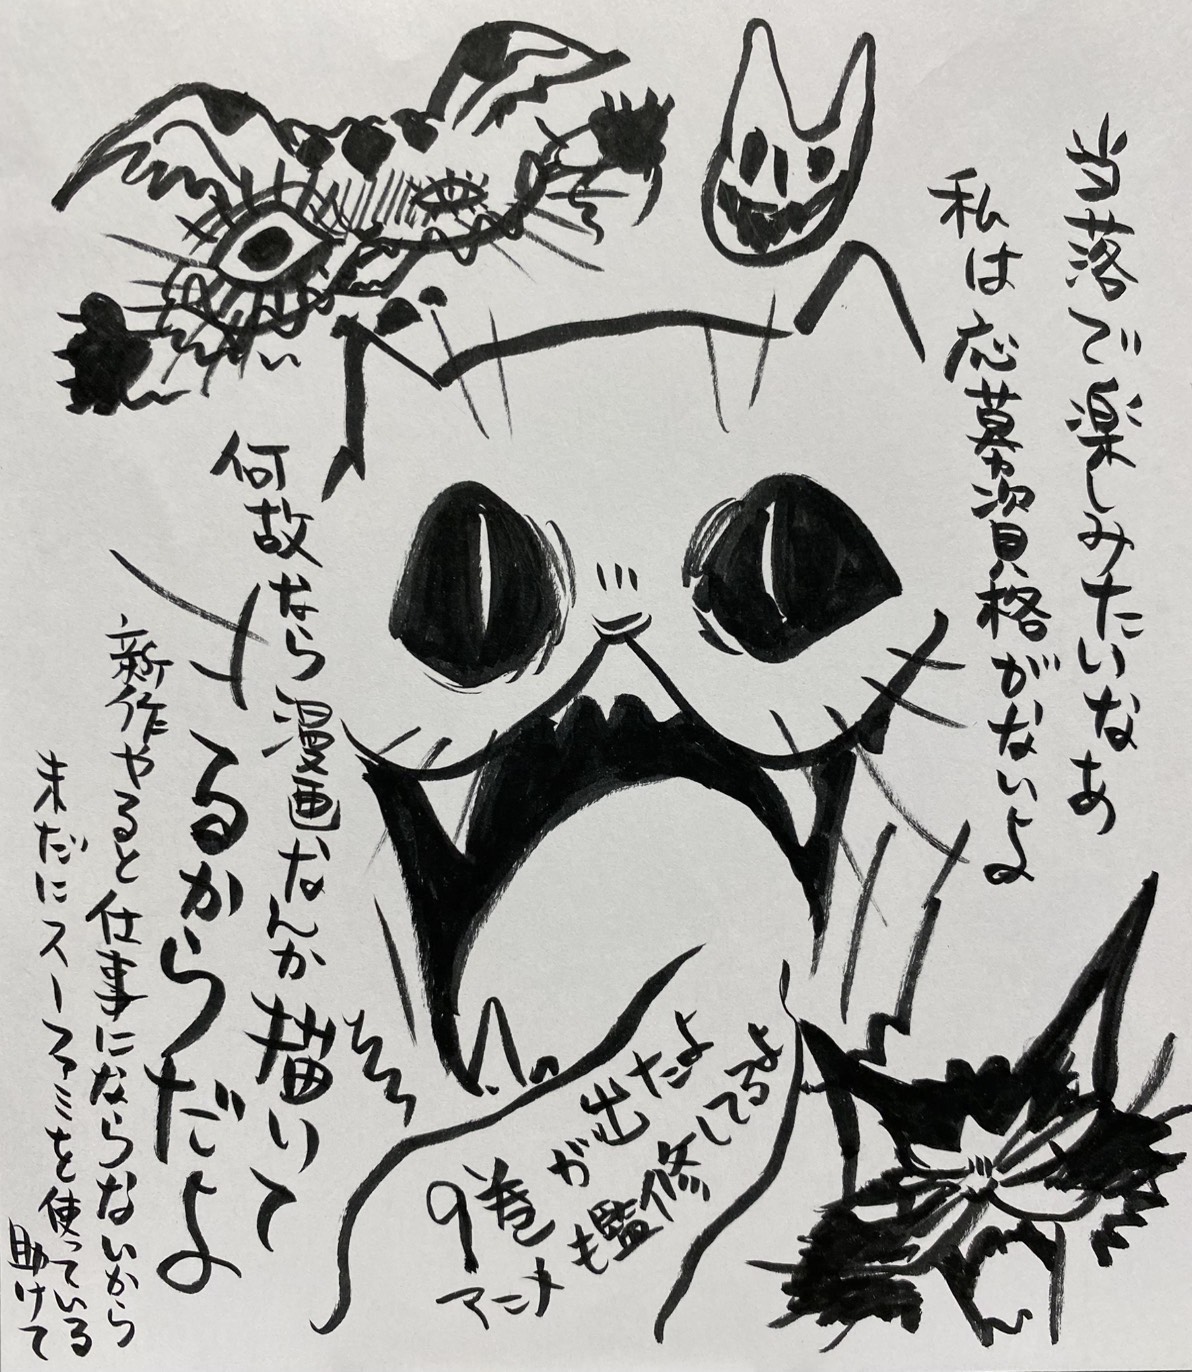 当落で楽しみたいなあ
私は応募資格がないよ
何故なら漫画なんか描いて
るからだよ
新作やると仕事にならないから
未だにスーファミを使っている
助けて
9巻が出たよ
アニメも監修してるよ